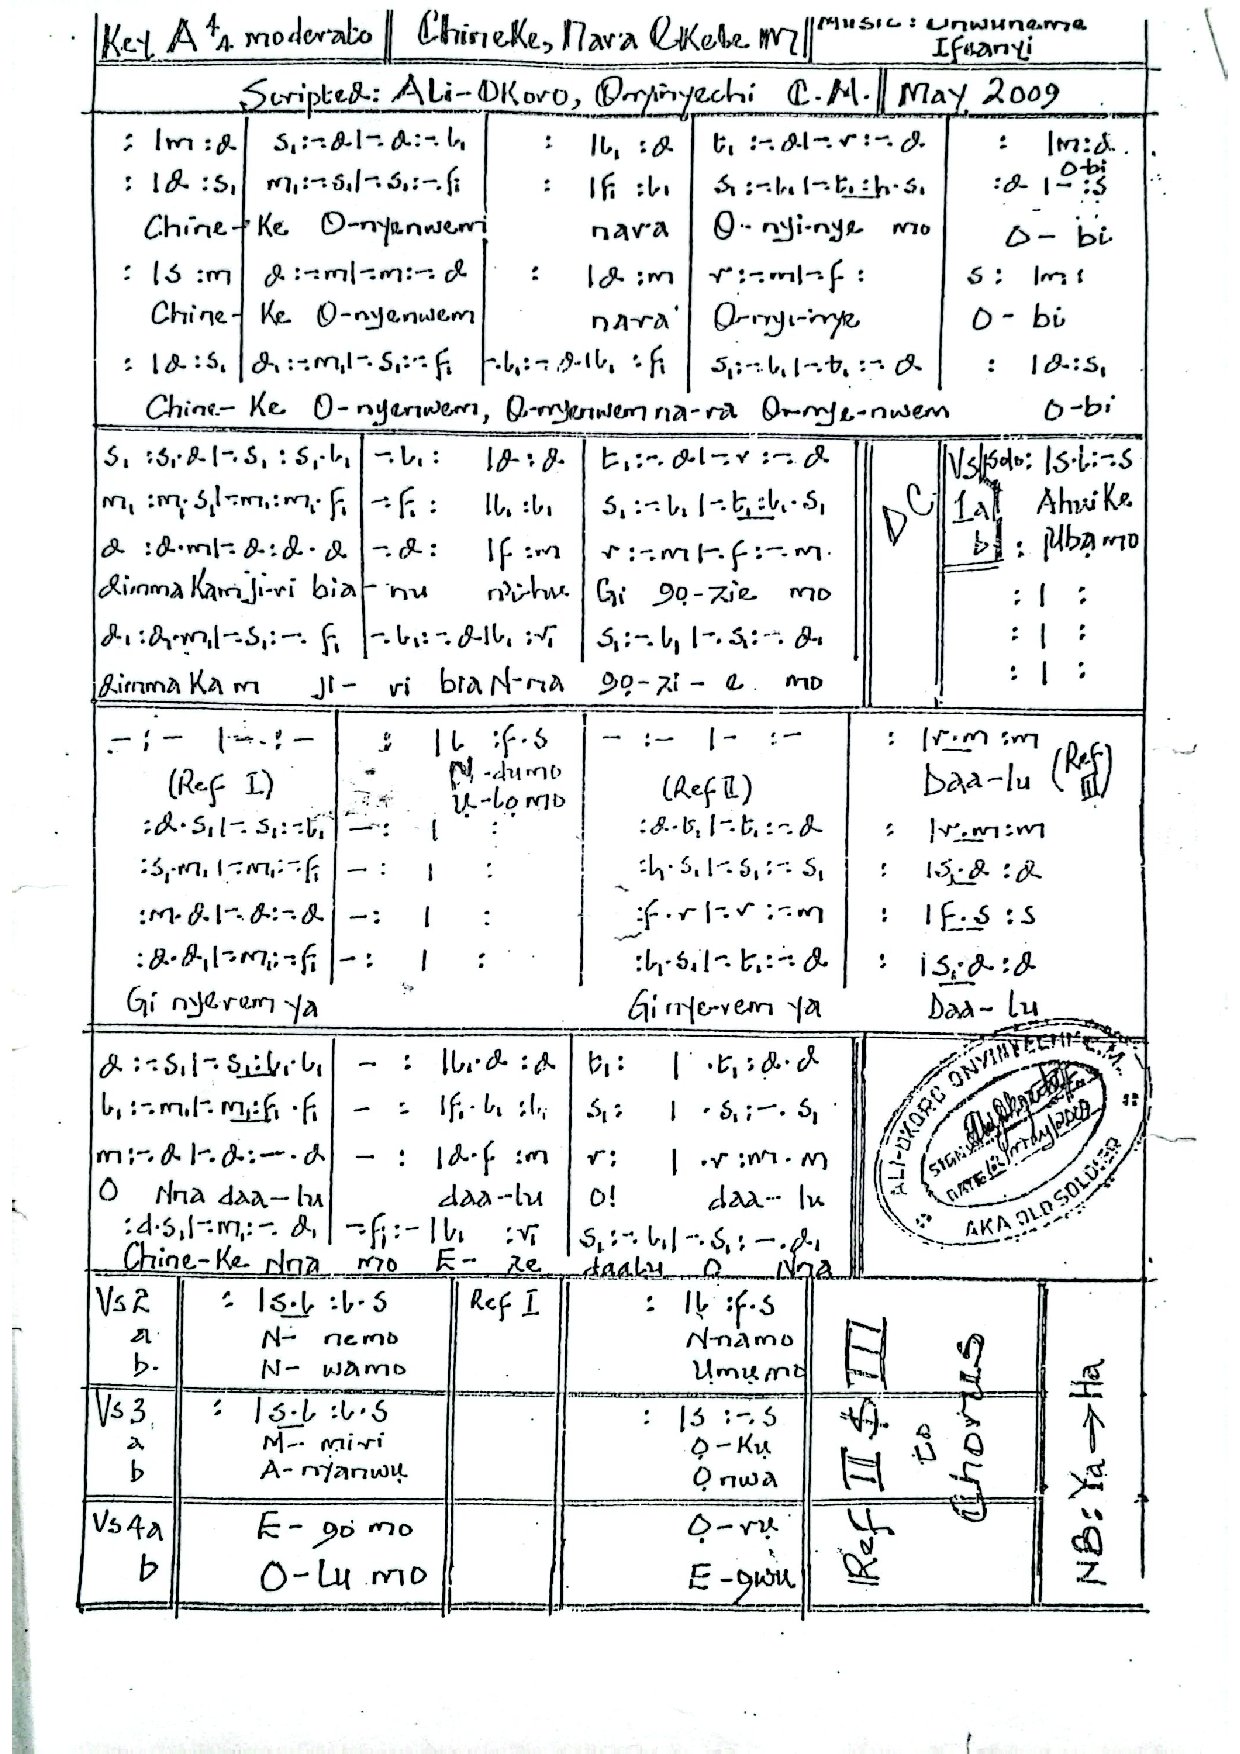 Key A 4/4 moderato || Chineke, Nara Ekele M || Music: Unwunama
Ifeanyi
Scripted: Ali-Okoro, Onyinyechi C.M. || May 2009
: |m :d | s₁:-.d|-.d:-.l₁ | : |l₁ :d | t₁:-.d|-.r:-.d | : |m:d
O-bi
: |d :s₁ | m₁:-.s₁|-.s₁:-.f₁ | : |f₁ :l₁ | s₁:-.l₁|-.t₁:l₁.s₁ | :d |- :s
Chine-Ke O-nyenwem nara O-nyi-nye mo O-bi
: |s :m | d:-.m|-.m:-.d | : |d :m | r:-.m|-.f: | s: |m:
Chine-Ke O-nyenwem nara O-nyi-nye O-bi
: |d :s₁ | d₁:-.m₁|-.s₁:-.f₁ | -.l₁:-.d|l₁ :f₁ | s₁:-.l₁|-.t₁:-.d | : |d:s₁
Chine-Ke O-nyenwem, O-nyenwem na-ra O-nye-nwem O-bi
s₁:s₁.d|-.s₁:s₁.l₁ | -.l₁: |d:d | t₁:-.d|-.r:-.d || DC || Vs | Solo: |s.l:-.s
m₁:m₁.s₁|-.m₁:m₁.f₁ | -.f₁: |l₁:l₁ | s₁:-.l₁|-.t₁:l₁.s₁ || 1a Ahuike
d:d.m|-.d:d.d | -.d: |f:m | r:-.m|-.f:-.m || b : Ụbamo
dimma Kam ji-ri bia-nu Gi gọ-zie mo : | :
d₁:d₁.m₁|-.s₁:-.f₁ | -.l₁:-.d|l₁:r₁ | s₁:-.l₁|-.s₁:-.d₁ : | :
: | :
dimma Kam ji-ri bia N-na gọ-zi-e mo
-:- |-.:- | : |l :f.s | -:- |- :- | : |r.m:m
(Ref I) N-dumo (Ref II) Daa-lu (Ref III)
Ụ-lọ mo
:d.s₁|-.s₁:-.t₁ | -: | : | :d.t₁|-.t₁:-.d | : |r.m:m
:s₁.m₁|-.m₁:-.f₁ | -: | : | :l₁.s₁|-.s₁:-.s₁ | : |s₁.d:d
:m.d|-.d:-.d | -: | : | :f.r|-.r:-.m | : |f.s:s
:d.d₁|-.m₁:-.f₁ | -: | : | :l₁.s₁|-.t₁:-.d | : |s₁.d:d
Gi nyerem ya Gi nye-rem ya Daa-lu
d:-.s₁|-.s₁:l₁.l₁ | -: |l₁.d:d | t₁: | .t₁:d.d
l₁:-.m₁|-.m₁:f₁.f₁ | -: |f₁.l₁:l₁ | s₁: | .s₁:-.s₁
m:-.d|-.d:-.d | -: |d.f:m | r: | .r:m.m
O Nna daa-lu daa-lu O! daa-lu
:d.s₁|-.m₁:-.d₁ | -.f₁:-|l₁ :r₁ | s₁:-.l₁|-.s₁:-.d₁
Chine-Ke Nna mo E-ze daalu O Nna
ALI-OKORO ONYINYECHI C.M.
SIGN
DATE
AKA OLD SOLDIER
Vs 2 | : |s.l:l.s | Ref I | : |l :f.s | Ref II $ III to Chorus | NB: Ya → Ha
a N-nemo N-namo
b. N-wamo Ụmụmo
Vs 3 | : |s.l:l.s | : |s :-.s
a M-miri Ọ-Kụ
b A-nyanwụ Ọnwa
Vs 4a E-gò mo Ọ-rụ
b O-lu mo E-gwu